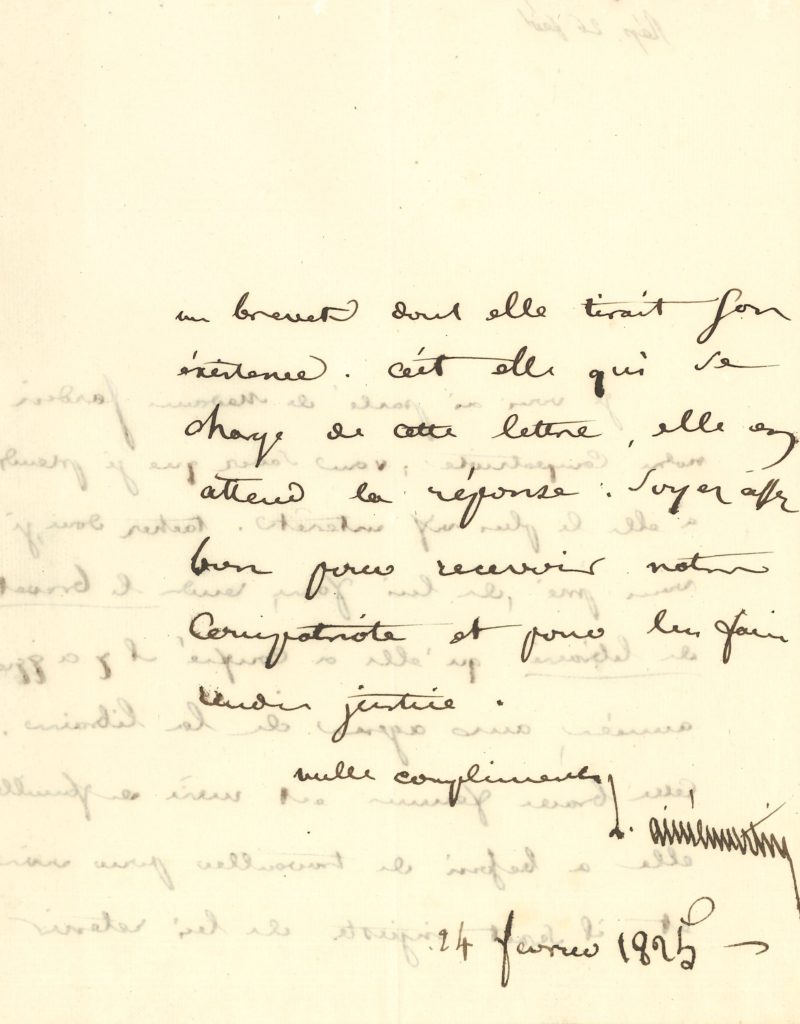 un brevet dont elle tirait son
éxistence. c'est elle qui se
charge de cette lettre, elle en
attend la réponse. Soyez assez
bon pour recevoir notre
Compatriote et pour lui faire
rendre justice.
mille compliments
L. aimémartin
24 fevrier 1825